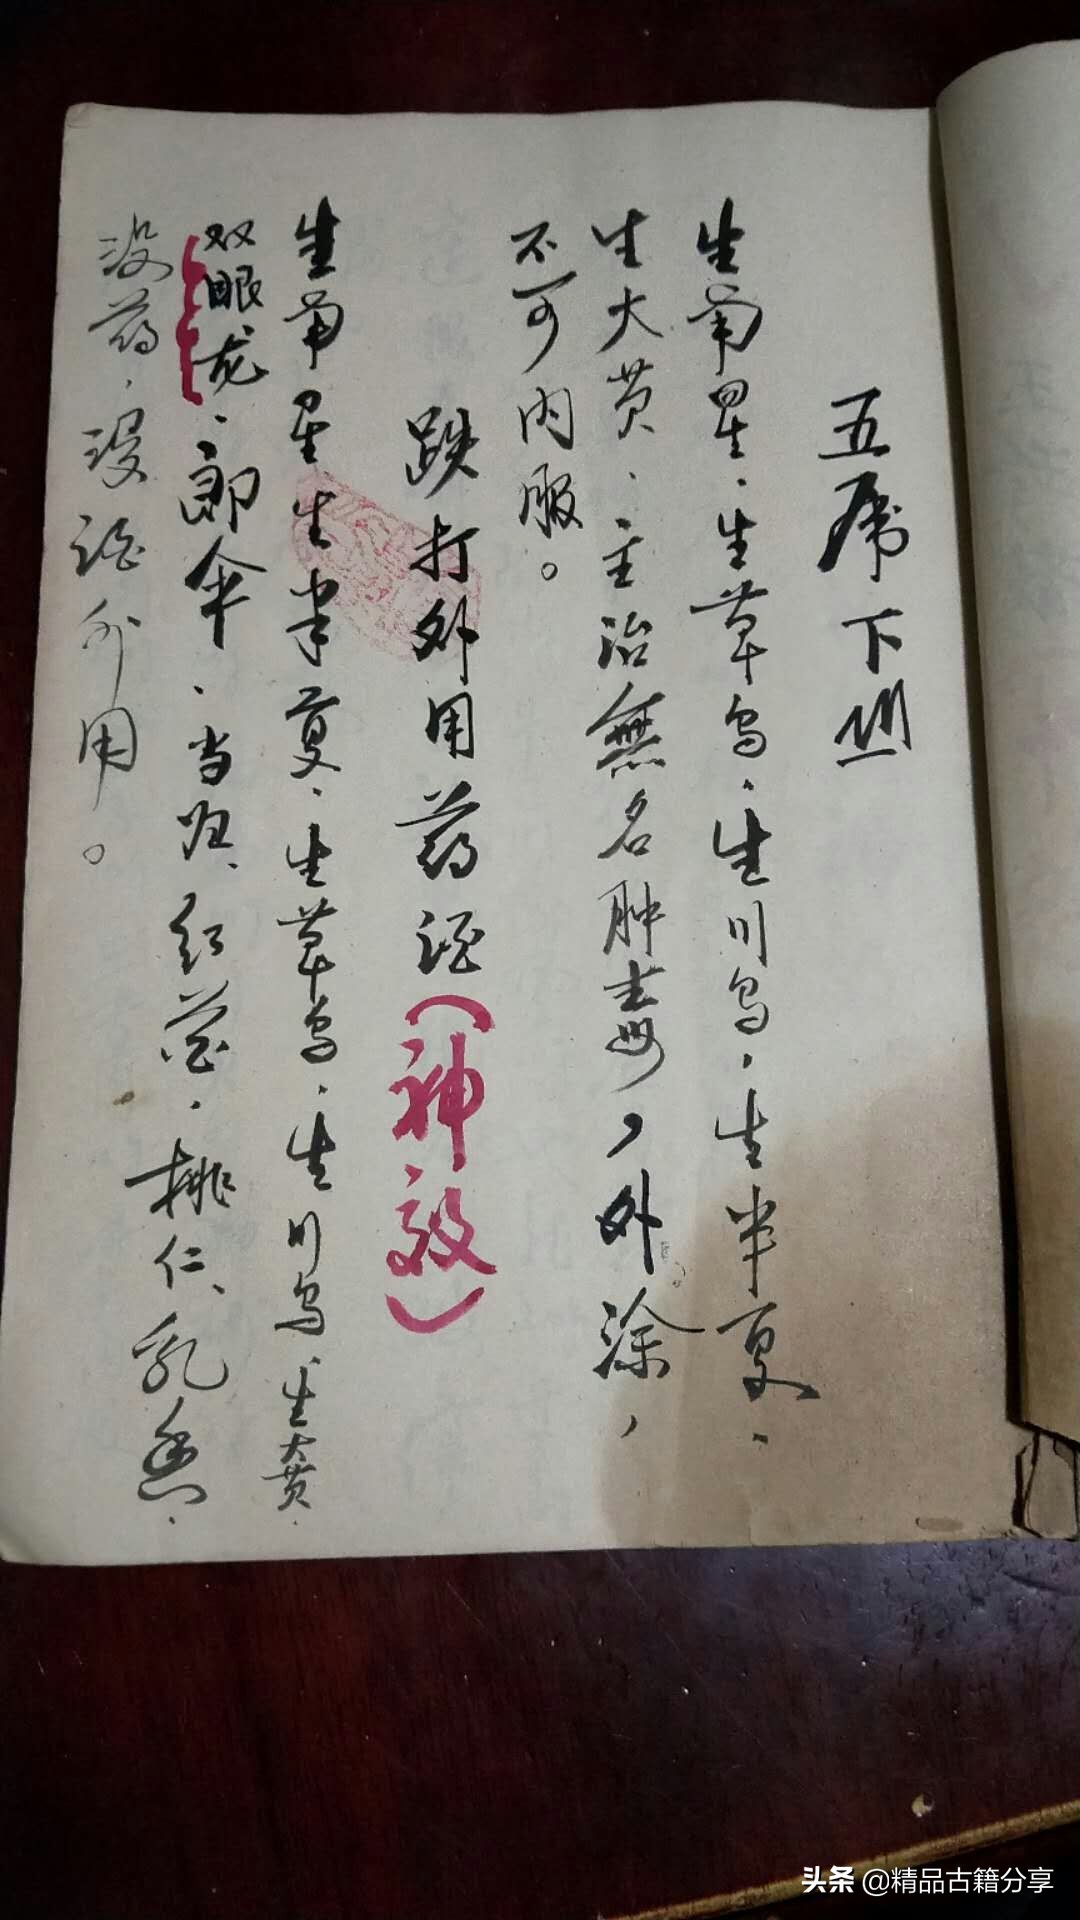 五虎下山
生南星、生草乌、生川乌、生半夏、
生大黄、主治無名肿毒,外涂,
不可内服。
跌打外用药酒(神效)
生南星生半夏、生草乌、生川乌生大黄、
双眼龙、郎伞、当归、红花、桃仁、乳香、
没药、浸酒外用。
头条 @精品古籍分享